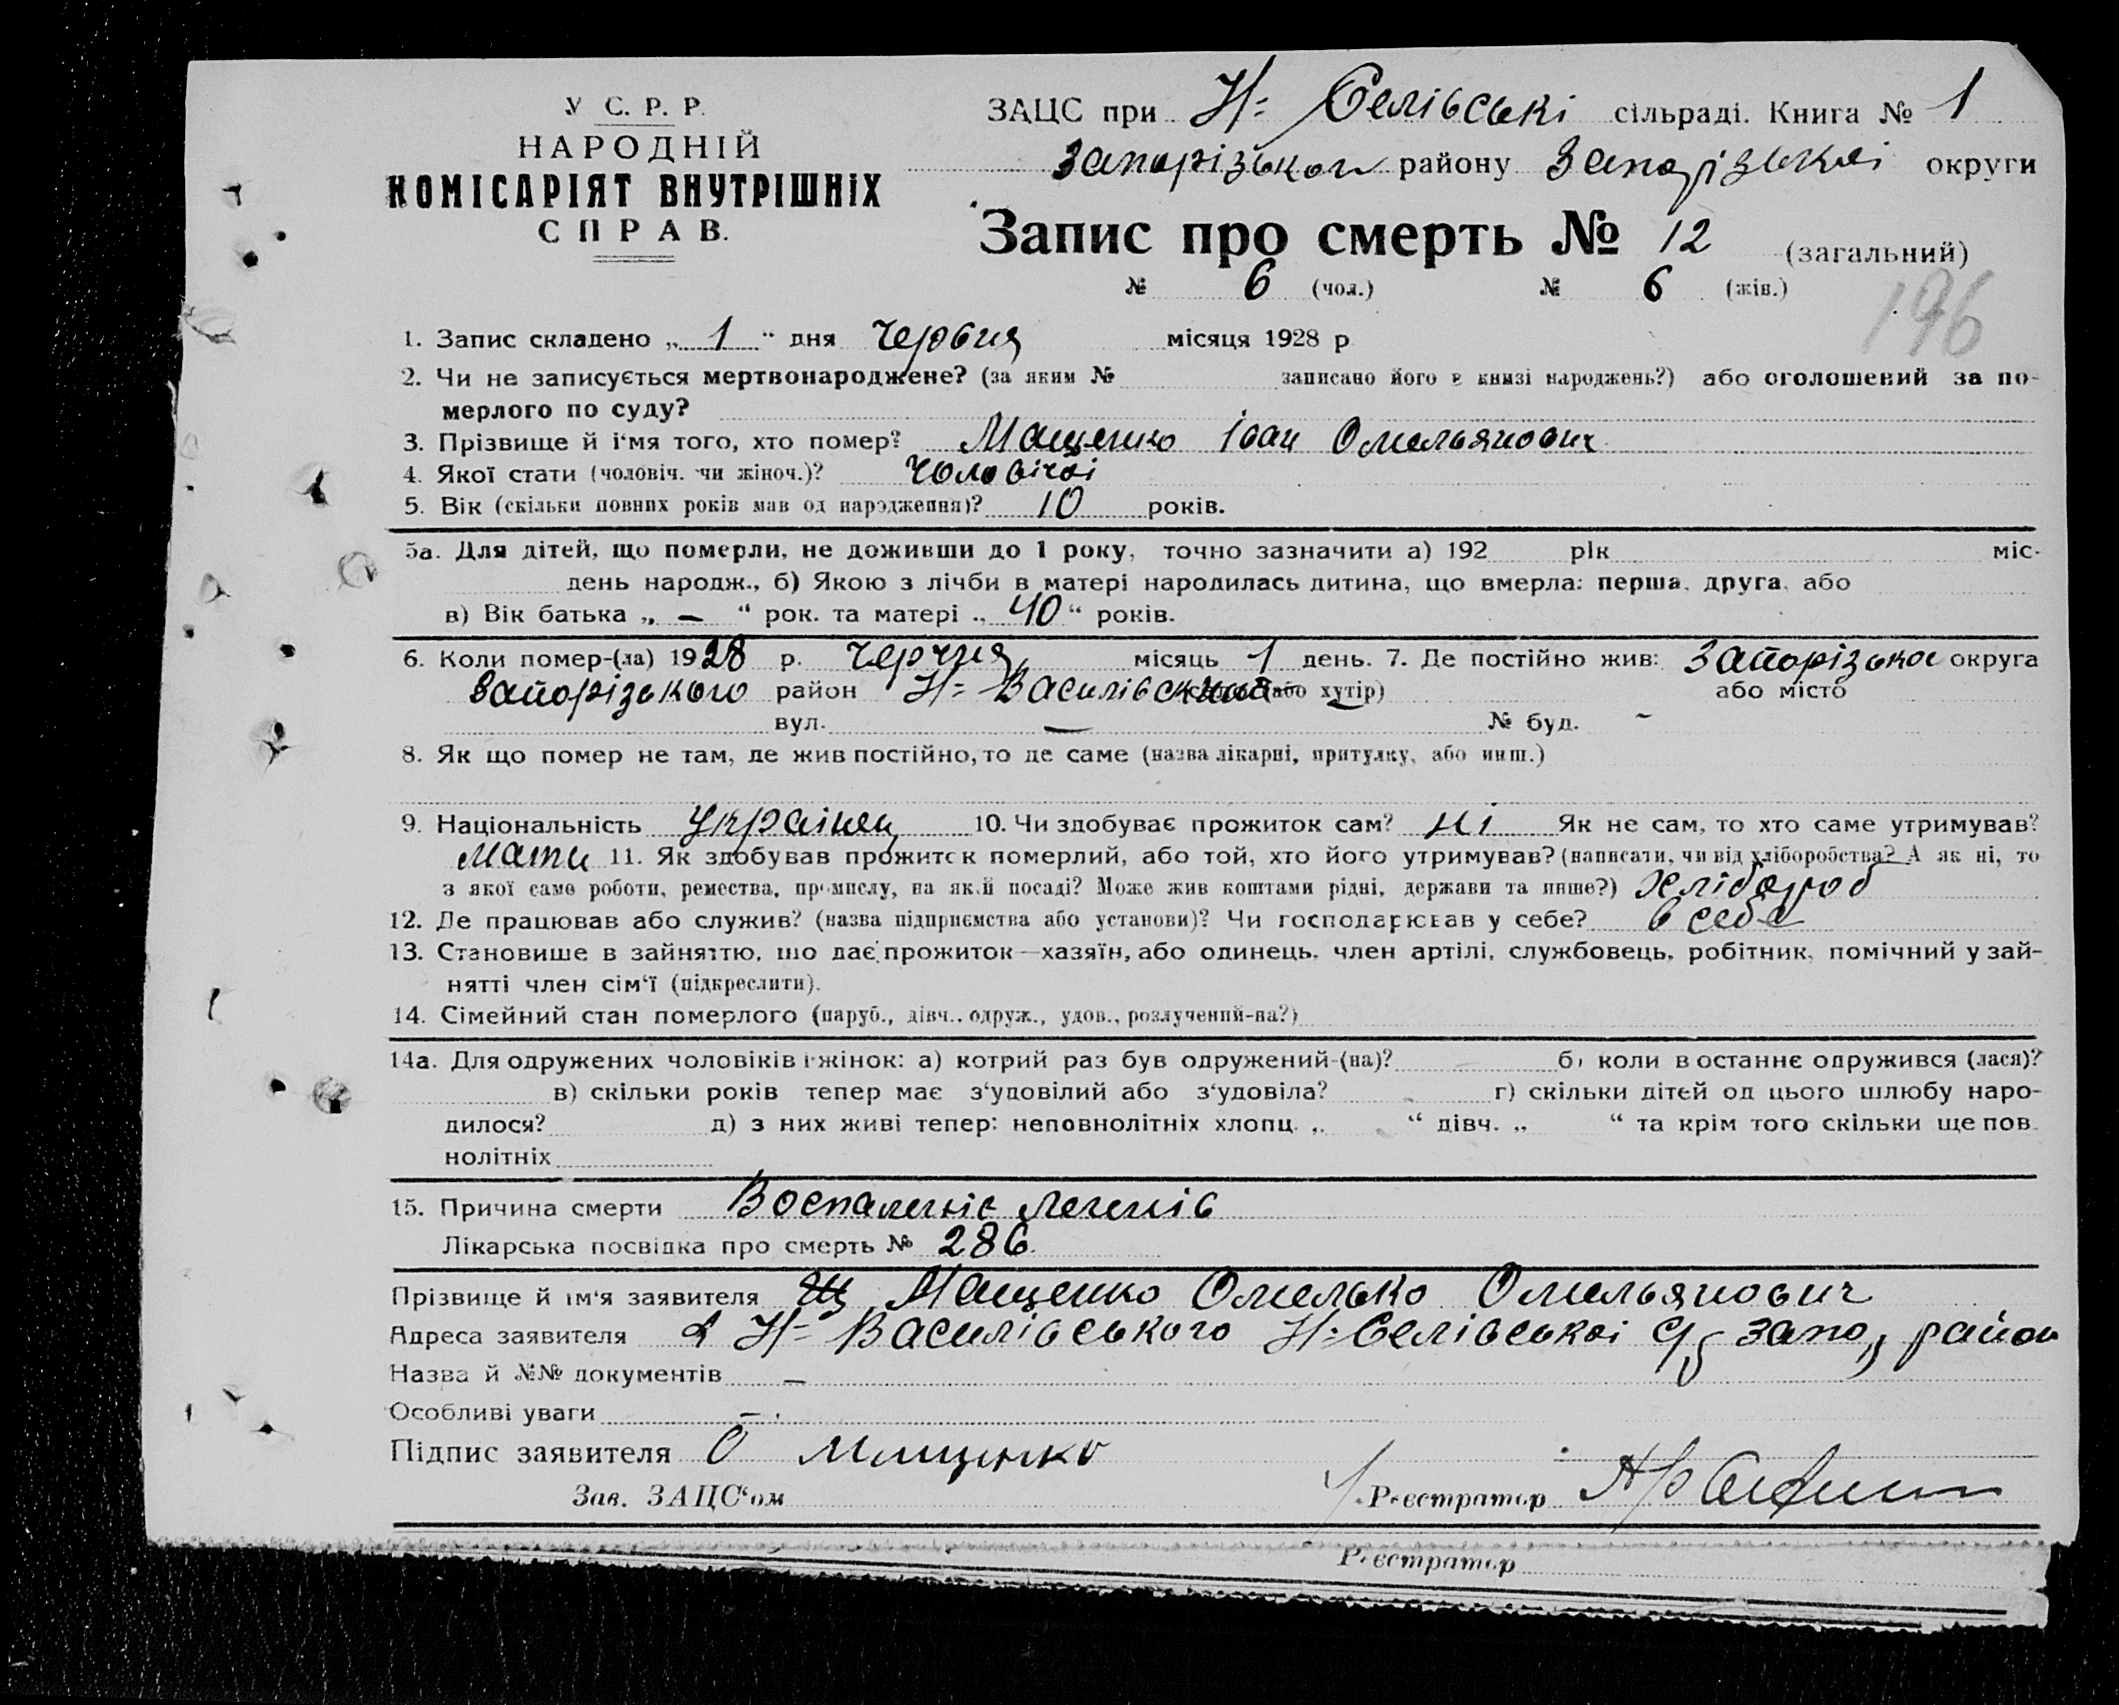 У С. Р. Р.
НАРОДНІЙ
КОМІСАРІЯТ ВНУТРІШНІХ
СПРАВ.
ЗАЦС при Н= Селівські сільраді. Книга № 1
Запорізького району Запорізької округи
Запис про смерть № 12 (загальний)
№ 6 (чол.) № 6 (жін.)
196
1. Запис складено „ 1 “ дня Червня місяця 1928 р
2. Чи не записується мертвонароджене? (за яким № записано його в книзі народжень?) або оголошений за по-
мерлого по суду?
3. Прізвище й і‘мя того, хто помер? Мащенко Іван Омельянович
4. Якої стати (чоловіч. чи жіноч.)? Чоловічої
5. Вік (скільки повних років мав од народження)? 10 років.
5а. Для дітей, що померли, не доживши до 1 року, точно зазначити а) 192 рік міс-
день народж., б) Якою з лічби в матері народилась дитина, що вмерла: перша, друга, або
в) Вік батька „ — “ рок. та матері „ 40 “ років.
6. Коли помер-(ла) 1928 р. Червня місяць 1 день. 7. Де постійно жив: Запорізької округа
Запорізького район Н= Василівський (або хутір) або місто
вул. — № буд. -
8. Як що помер не там, де жив постійно, то де саме (назва лікарні, притулку, або инш.)
9. Національність Українец 10. Чи здобуває прожиток сам? Ні Як не сам, то хто саме утримував?
Мати 11. Як здобував прожиток померлий, або той, хто його утримував? (написати, чи від хліборобства? А як ні, то
з якої саме роботи, ремества, промислу, на якій посаді? Може жив коштами рідні, держави та инше?) Хлібороб
12. Де працював або служив? (назва підприємства або установи)? Чи господарював у себе? в себе
13. Становище в зайняттю, що дає прожиток—хазяїн, або одинець, член артілі, службовець, робітник, помічний у зай-
нятті член сім‘ї (підкреслити).
14. Сімейний стан померлого (паруб., дівч., одруж., удов., розлучений-на?)
14а. Для одружених чоловіків і жінок: а) котрий раз був одружений-(на)? б) коли в останнє одружився (лася)?
в) скільки років тепер має з‘удовілий або з‘удовіла? г) скільки дітей од цього шлюбу наро-
дилося? д) з них живі тепер: неповнолітніх хлопц. „ “ дівч. „ “ та крім того скільки ще пов-
нолітніх
15. Причина смерти Воспаленіє легенів
Лікарська посвідка про смерть № 286
Прізвище й ім‘я заявителя Мащенко Омелько Омельянович
Адреса заявителя Н= Василівського Н=Селівської запо район
Назва й №№ документів —
Особливі уваги — .
Підпис заявителя О Мащенко
Зав. ЗАЦС‘ом Реєстратор
Реєстратор